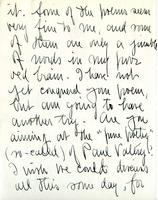 it. Some of the poems seem
very fine to me, and some
of them are only a jumble
of words in my poor
red brain. I have not
yet conquered your poem,
but am going to have
another try. Are you
aiming at the "pure poetry"
(so-called) of Paul Valéry?
I wish we could discuss
all this some day, for